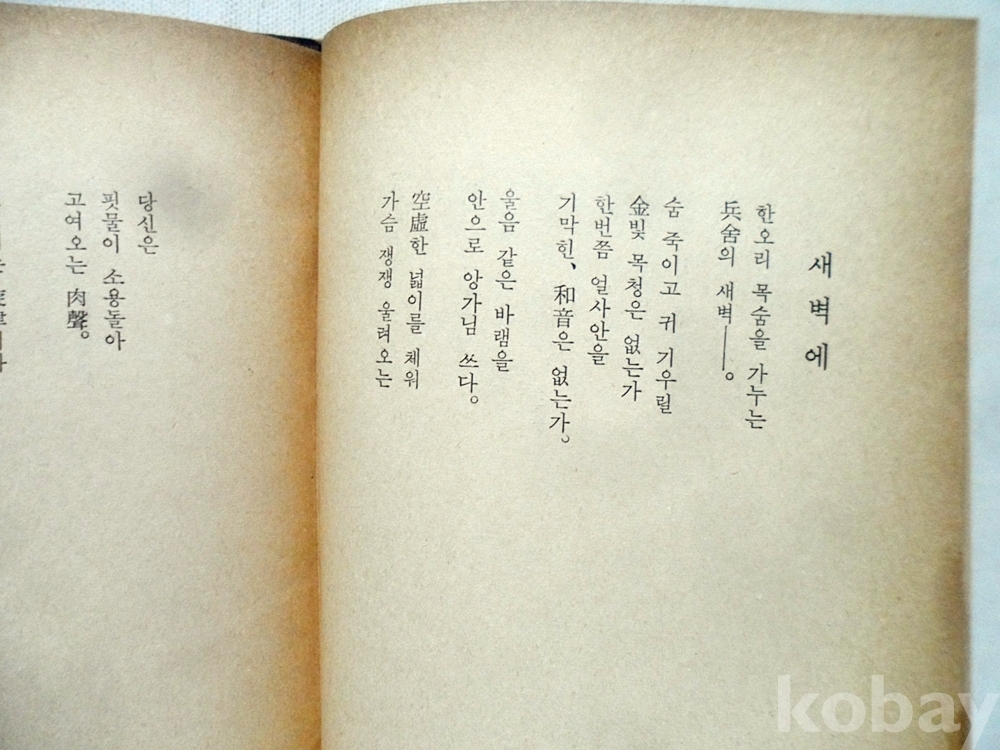 새벽에
한오리 목숨을 가누는
兵舍의 새벽──。
숨 죽이고 귀 기우릴
金빛 목청은 없는가
한번쯤 얼사안을
기막힌、和音은 없는가。
울음 같은 바램을
안으로 앙가님 쓰다。
空虛한 넓이를 체워
가슴 쨍쨍 울려오는
당신은
핏물이 소용돌아
고여오는 肉聲。
kobay